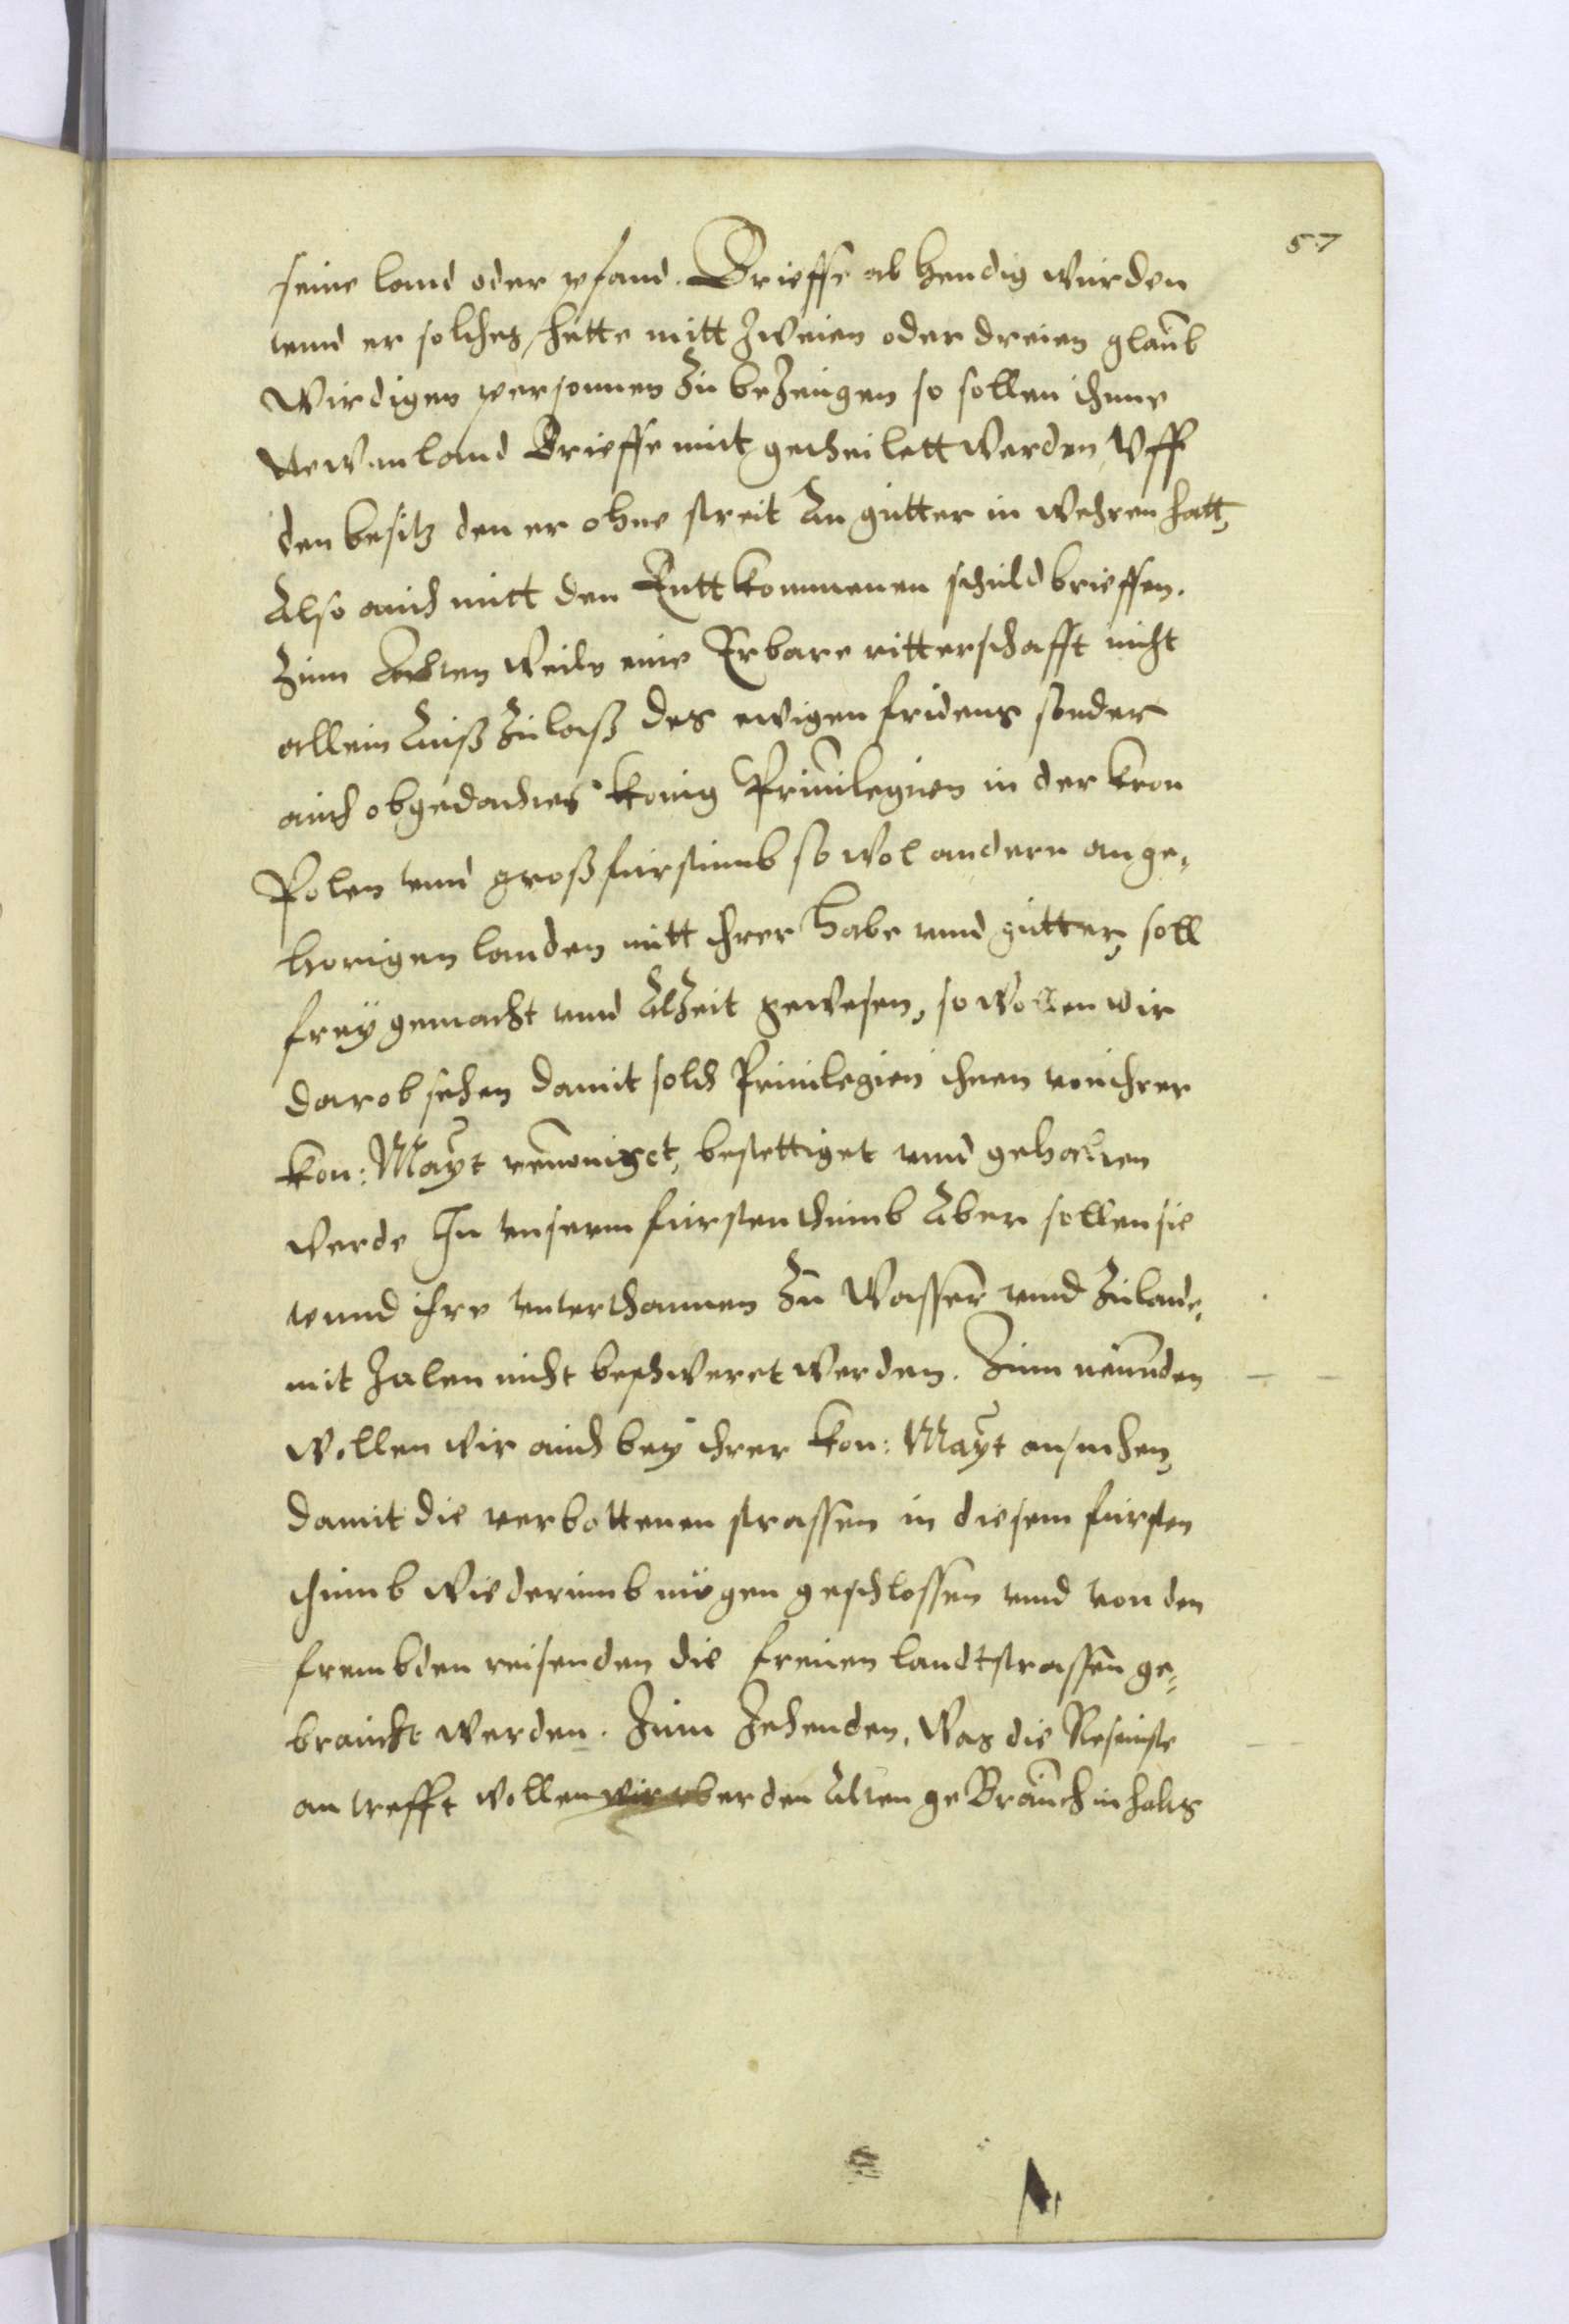 57
seine land oder pfand. Brieffe ab hendig würden
vnnd er solches hette mitt zweien oder dreien glaub
wirdigen personnen zu bezeugen so sollen ihme
Newan land Brieffe mit getheilett werden, vff
den besitz den er ohne streit an gutter in wehren hatt,
Also auch mitt den Entt kommenen schuld brieffen.
Zum Achten weile eine Erbare ritterschafft nicht
allein auß Zulaß des ewigen fridens sonder
auch obgedachtes König Priuilegien in der kron
Polen vnnd großfürstumb so wol andern ange,
horigen landen mitt ihrer habe vnnd gutter, soll
frey gemacht vnnd Alzeit gewesen, so wollen wir
darob sehen damit solch Priuilegien ihnen von ihrer
kon: Mayt bestettiget vnnd gehalten
werde In vnserm furstenthumb Aber sollen sie
vnnd ihre vnterthannen zu Wasser vnnd zulande,
mit Zolen nicht beschweret werden. Zum neunden
wollen wir auch bey ihrer kon: Mayt ansuchen,
damit die verbottenen strassen in diesem fursten
thumb wiederumb mögen geschlossen vnnd von den
frembden reisenden die freien landtstrassen ge,
braucht werden. Zum Zehenden, was die
an trefft wollen wir vber den Alten geBrauch inhalts